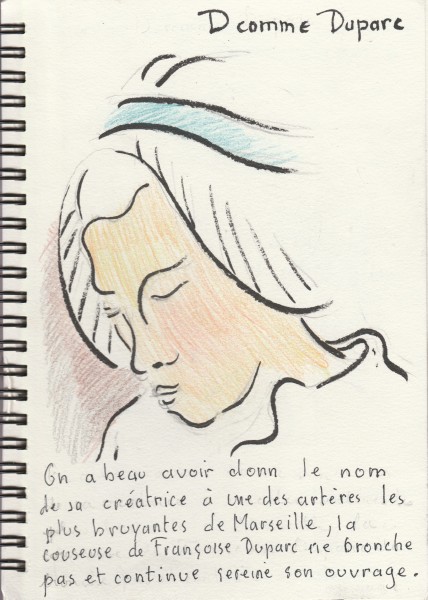 D comme Duparc
On a beau avoir donn le nom
de sa créatrice à une des artères les
plus bruyantes de Marseille, la
couseuse de Françoise Duparc ne bronche
pas et continue sereine son ouvrage.